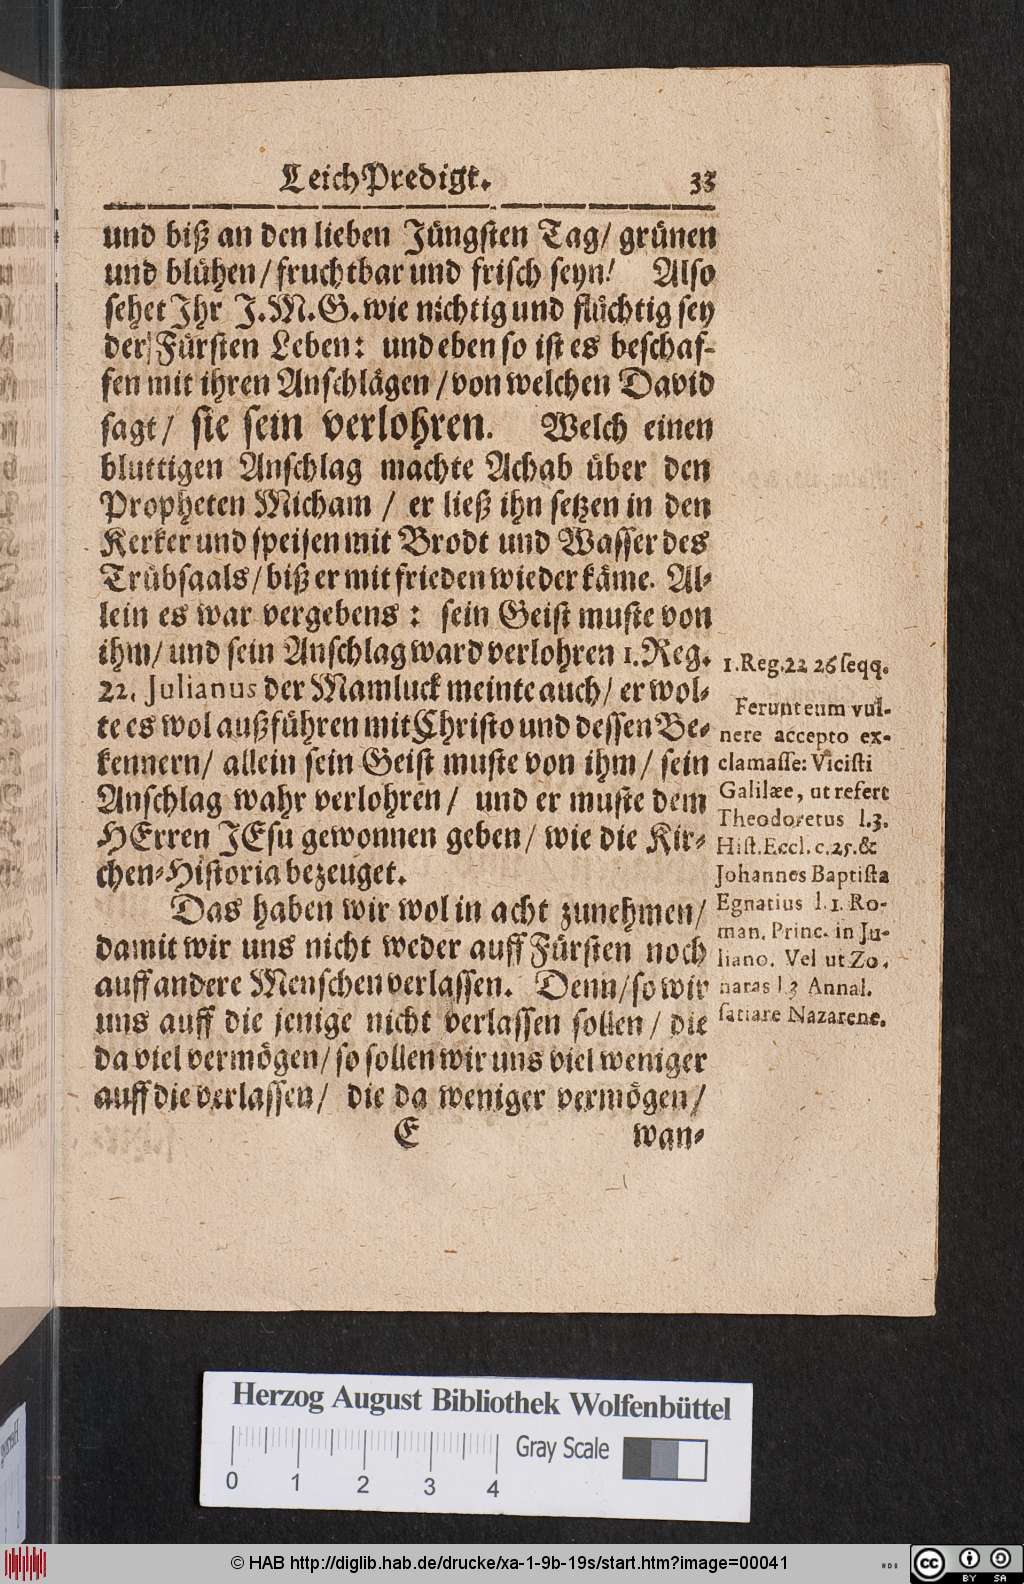 LeichPredigt. 33
und biß an den lieben Jüngsten Tag/ grünen
und blühen/ fruchtbar und frisch seyn! Also
sehet Ihr J. M. G. wie nichtig und flüchtig sey
der Fürsten Leben: und eben so ist es beschaf-
fen mit ihren Anschlägen / von welchen David
sagt/ sie sein verlohren. Welch einen
bluttigen Anschlag machte Achab über den
Propheten Micham / er ließ ihn setzen in den
Kerker und speisen mit Brodt und Wasser des
Trübsaals/ biß er mit frieden wieder käme. Al-
lein es war vergebens: sein Geist muste von
ihm/ und sein Anschlag ward verlohren 1. Reg.
22. Julianus der Mamluck meinte auch/ er wol-
te es wol außführen mit Christo und dessen Be-
kennern/ allein sein Geist muste von ihm/ sein
Anschlag wahr verlohren/ und er muste dem
HErren JEsu gewonnen geben/ wie die Kir-
chen-Historia bezeuget.
Das haben wir wol in acht zunehmen/
damit wir uns nicht weder auff Fürsten noch
auff andere Menschen verlassen. Denn/ so wir
uns auff die jenige nicht verlassen sollen/ die
da viel vermögen/ so sollen wir uns viel weniger
auff die verlassen/ die da weniger vermögen/
E wan-
1. Reg. 22 26 seqq.
Ferunt eum vul-
nere accepto ex-
clamasse: Vicisti
Galilæe, ut refert
Theodoretus l.3.
Hist. Eccl. c. 25. &
Johannes Baptista
Egnatius l. 1. Ro-
man. Princ. in Ju-
liano. Vel ut Zo-
naras l 3 Annal.
satiare Nazarene.
Herzog August Bibliothek Wolfenbüttel
0 1 2 3 4
Gray Scale
© HAB http://diglib.hab.de/drucke/xa-1-9b-19s/start.htm?image=00041
cc BY SA